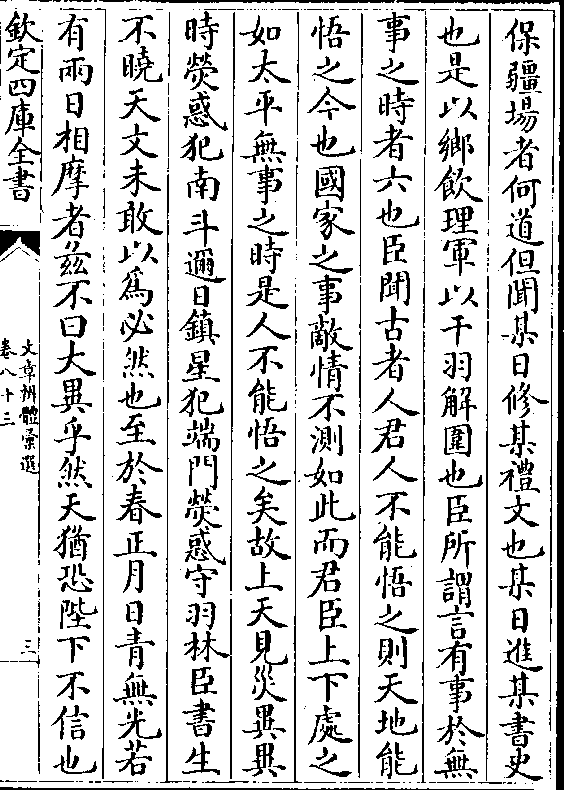 保疆場者何道但聞某日修某禮文也某日進某書史
也是以鄉飲理軍以干羽解圍也臣所謂言有事於無
事之時者六也臣聞古者人君人不能悟之則天地能
悟之今也國家之事敵情不測如此而君臣上下處之
如太平無事之時是人不能悟之矣故上天見災異異
時熒惑犯南斗邇日鎮星犯端門熒惑守羽林臣書生
不曉天文未敢以為必然也至於春正月日青無光若
有兩日相摩者茲不曰大異乎然天猶恐陛下不信也
欽定四庫全書
文章辨體彙選
卷八十三
三